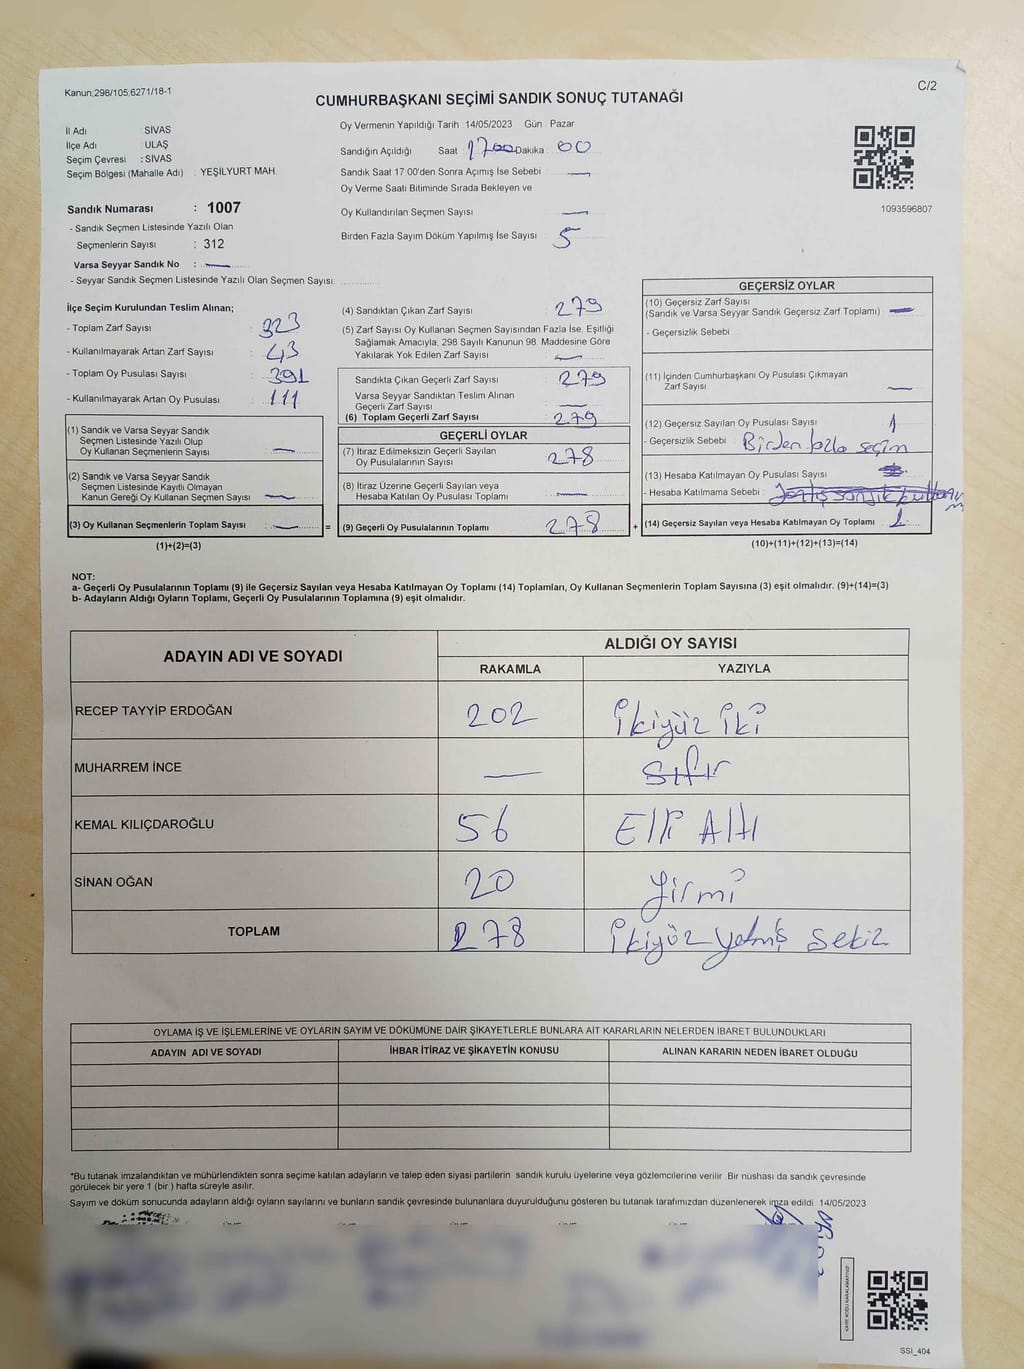 Kanun;298/105;6271/18-1
C/2
CUMHURBAŞKANI SEÇİMİ SANDIK SONUÇ TUTANAĞI
İl Adı : SİVAS
İlçe Adı : ULAŞ
Seçim Çevresi : SİVAS
Seçim Bölgesi (Mahalle Adı) : YEŞİLYURT MAH.
Sandık Numarası : 1007
- Sandık Seçmen Listesinde Yazılı Olan
Seçmenlerin Sayısı : 312
Varsa Seyyar Sandık No : —
- Seyyar Sandık Seçmen Listesinde Yazılı Olan Seçmen Sayısı :
Oy Vermenin Yapıldığı Tarih :14/05/2023 Gün : Pazar
Sandığın Açıldığı Saat : 1700 Dakika : 00
Sandık Saat 17:00'den Sonra Açımış İse Sebebi : —
Oy Verme Saati Bitiminde Sırada Bekleyen ve
Oy Kullandırılan Seçmen Sayısı —
Birden Fazla Sayım Döküm Yapılmış İse Sayısı : 5
1093596807
İlçe Seçim Kurulundan Teslim Alınan;
- Toplam Zarf Sayısı : 323
- Kullanılmayarak Artan Zarf Sayısı : 43
- Toplam Oy Pusulası Sayısı : 391
- Kullanılmayarak Artan Oy Pusulası : 111
(1) Sandık ve Varsa Seyyar Sandık
Seçmen Listesinde Yazılı Olup
Oy Kullanan Seçmenlerin Sayısı : —
(2) Sandık ve Varsa Seyyar Sandık
Seçmen Listesinde Kayıtlı Olmayan
Kanun Gereği Oy Kullanan Seçmen Sayısı : —
(3) Oy Kullanan Seçmenlerin Toplam Sayısı : — =
(1)+(2)=(3)
(4) Sandıktan Çıkan Zarf Sayısı : 279
(5) Zarf Sayısı Oy Kullanan Seçmen Sayısından Fazla İse, Eşitliği
Sağlamak Amacıyla, 298 Sayılı Kanunun 98. Maddesine Göre
Yakılarak Yok Edilen Zarf Sayısı : —
Sandıkta Çıkan Geçerli Zarf Sayısı : 279
Varsa Seyyar Sandıktan Teslim Alınan
Geçerli Zarf Sayısı : —
(6) Toplam Geçerli Zarf Sayısı : 279
GEÇERLİ OYLAR
(7) İtiraz Edilmeksizin Geçerli Sayılan
Oy Pusulalarının Sayısı : 278
(8) İtiraz Üzerine Geçerli Sayılan veya
Hesaba Katılan Oy Pusulası Toplamı : —
(9) Geçerli Oy Pusulalarının Toplamı : 278 +
GEÇERSİZ OYLAR
(10) Geçersiz Zarf Sayısı
(Sandık ve Varsa Seyyar Sandık Geçersiz Zarf Toplamı) : —
- Geçersizlik Sebebi :
(11) İçinden Cumhurbaşkanı Oy Pusulası Çıkmayan
Zarf Sayısı : —
(12) Geçersiz Sayılan Oy Pusulası Sayısı : 1
- Geçersizlik Sebebi : Birden fazla seçim
(13) Hesaba Katılmayan Oy Pusulası Sayısı
- Hesaba Katılmama Sebebi :
(14) Geçersiz Sayılan veya Hesaba Katılmayan Oy Toplamı : 1
(10)+(11)+(12)+(13)=(14)
NOT:
a- Geçerli Oy Pusulalarının Toplamı (9) ile Geçersiz Sayılan veya Hesaba Katılmayan Oy Toplamı (14) Toplamları, Oy Kullanan Seçmenlerin Toplam Sayısına (3) eşit olmalıdır. (9)+(14)=(3)
b- Adayların Aldığı Oyların Toplamı, Geçerli Oy Pusulalarının Toplamına (9) eşit olmalıdır.
ADAYIN ADI VE SOYADI
ALDIĞI OY SAYISI
RAKAMLA YAZIYLA
RECEP TAYYİP ERDOĞAN 202 ikiyüz iki
MUHARREM İNCE — sıfır
KEMAL KILIÇDAROĞLU 56 Elli Altı
SİNAN OĞAN 20 yirmi
TOPLAM 278 ikiyüz yetmiş sekiz
OYLAMA İŞ VE İŞLEMLERİNE VE OYLARIN SAYIM VE DÖKÜMÜNE DAİR ŞİKAYETLERLE BUNLARA AİT KARARLARIN NELERDEN İBARET BULUNDUKLARI
ADAYIN ADI VE SOYADI İHBAR İTİRAZ VE ŞİKAYETİN KONUSU ALINAN KARARIN NEDEN İBARET OLDUĞU
*Bu tutanak imzalandıktan ve mühürlendikten sonra seçime katılan adayların ve talep eden siyasi partilerin sandık kurulu üyelerine veya gözlemcilerine verilir. Bir nüshası da sandık çevresinde
görülecek bir yere 1 (bir ) hafta süreyle asılır.
Sayım ve döküm sonucunda adayların aldığı oyların sayılarını ve bunların sandık çevresinde bulunanlara duyurulduğunu gösteren bu tutanak tarafımızdan düzenlenerek imza edildi. 14/05/2023
SSI_404